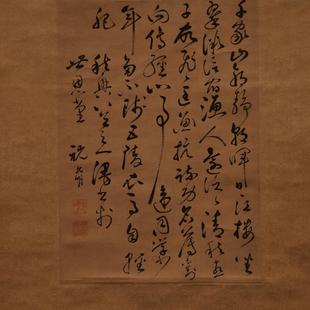 千家山郭靜朝暉日日江樓坐
翠微信宿漁人還泛泛清秋燕
子故飛飛匡衡抗疏功名薄劉
向傳經心事違同學少
年多不賤五陵衣馬自輕
肥 秋興
世恩堂